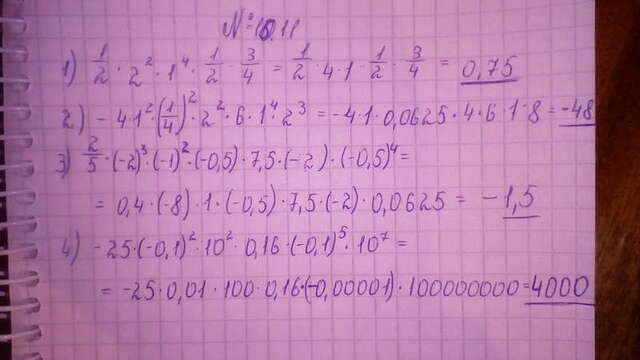 №10.11
1) 1/2 · 2² · 1⁴ · 1/2 · 3/4 = 1/2 · 4 · 1 · 1/2 · 3/4 = 0,75
2) - 4·1²·(1/4)²·2²·6·1⁴·2³ = -4·1·0,0625·4·6·1·8 = -48
3) 2/5 · (-2)³·(-1)²·(-0,5)·7,5·(-2)·(-0,5)⁴=
= 0,4·(-8)·1·(-0,5)·7,5·(-2)·0,0625 = -1,5
4) -25·(-0,1)²·10²·0,16·(-0,1)⁵·10⁷=
= -25·0,01·100·0,16·(-0,00001)·100000000=4000